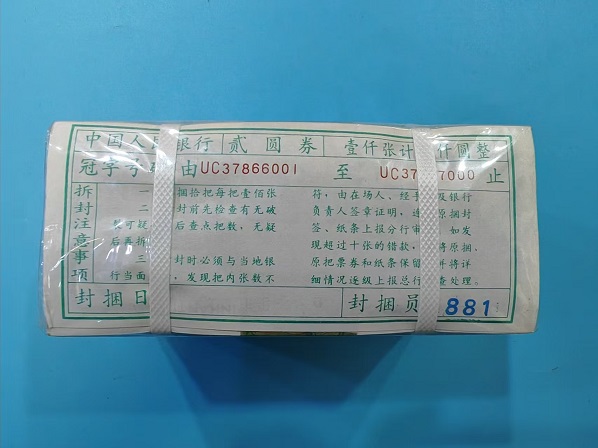 中国人民银行 贰圆券 壹仟张计 仟圆整
冠字号 由UC37866001 至 UC37 7000 止
拆封注意事项
一 捆拾把每把壹佰张
二 封前先检查有无破
裂可疑 后查点把数，无疑
后再拆
三 封时必须与当地银
行当面 ，发现把内张数不
符，由在场人、经手 及银行
负责人签章证明，连 原捆封
签、纸条上报分行审 如发
现超过十张的借款， 将原捆、
原把票券和纸条保留 并将详
细情况逐级上报总行 查处理。
封捆日 封捆员 881